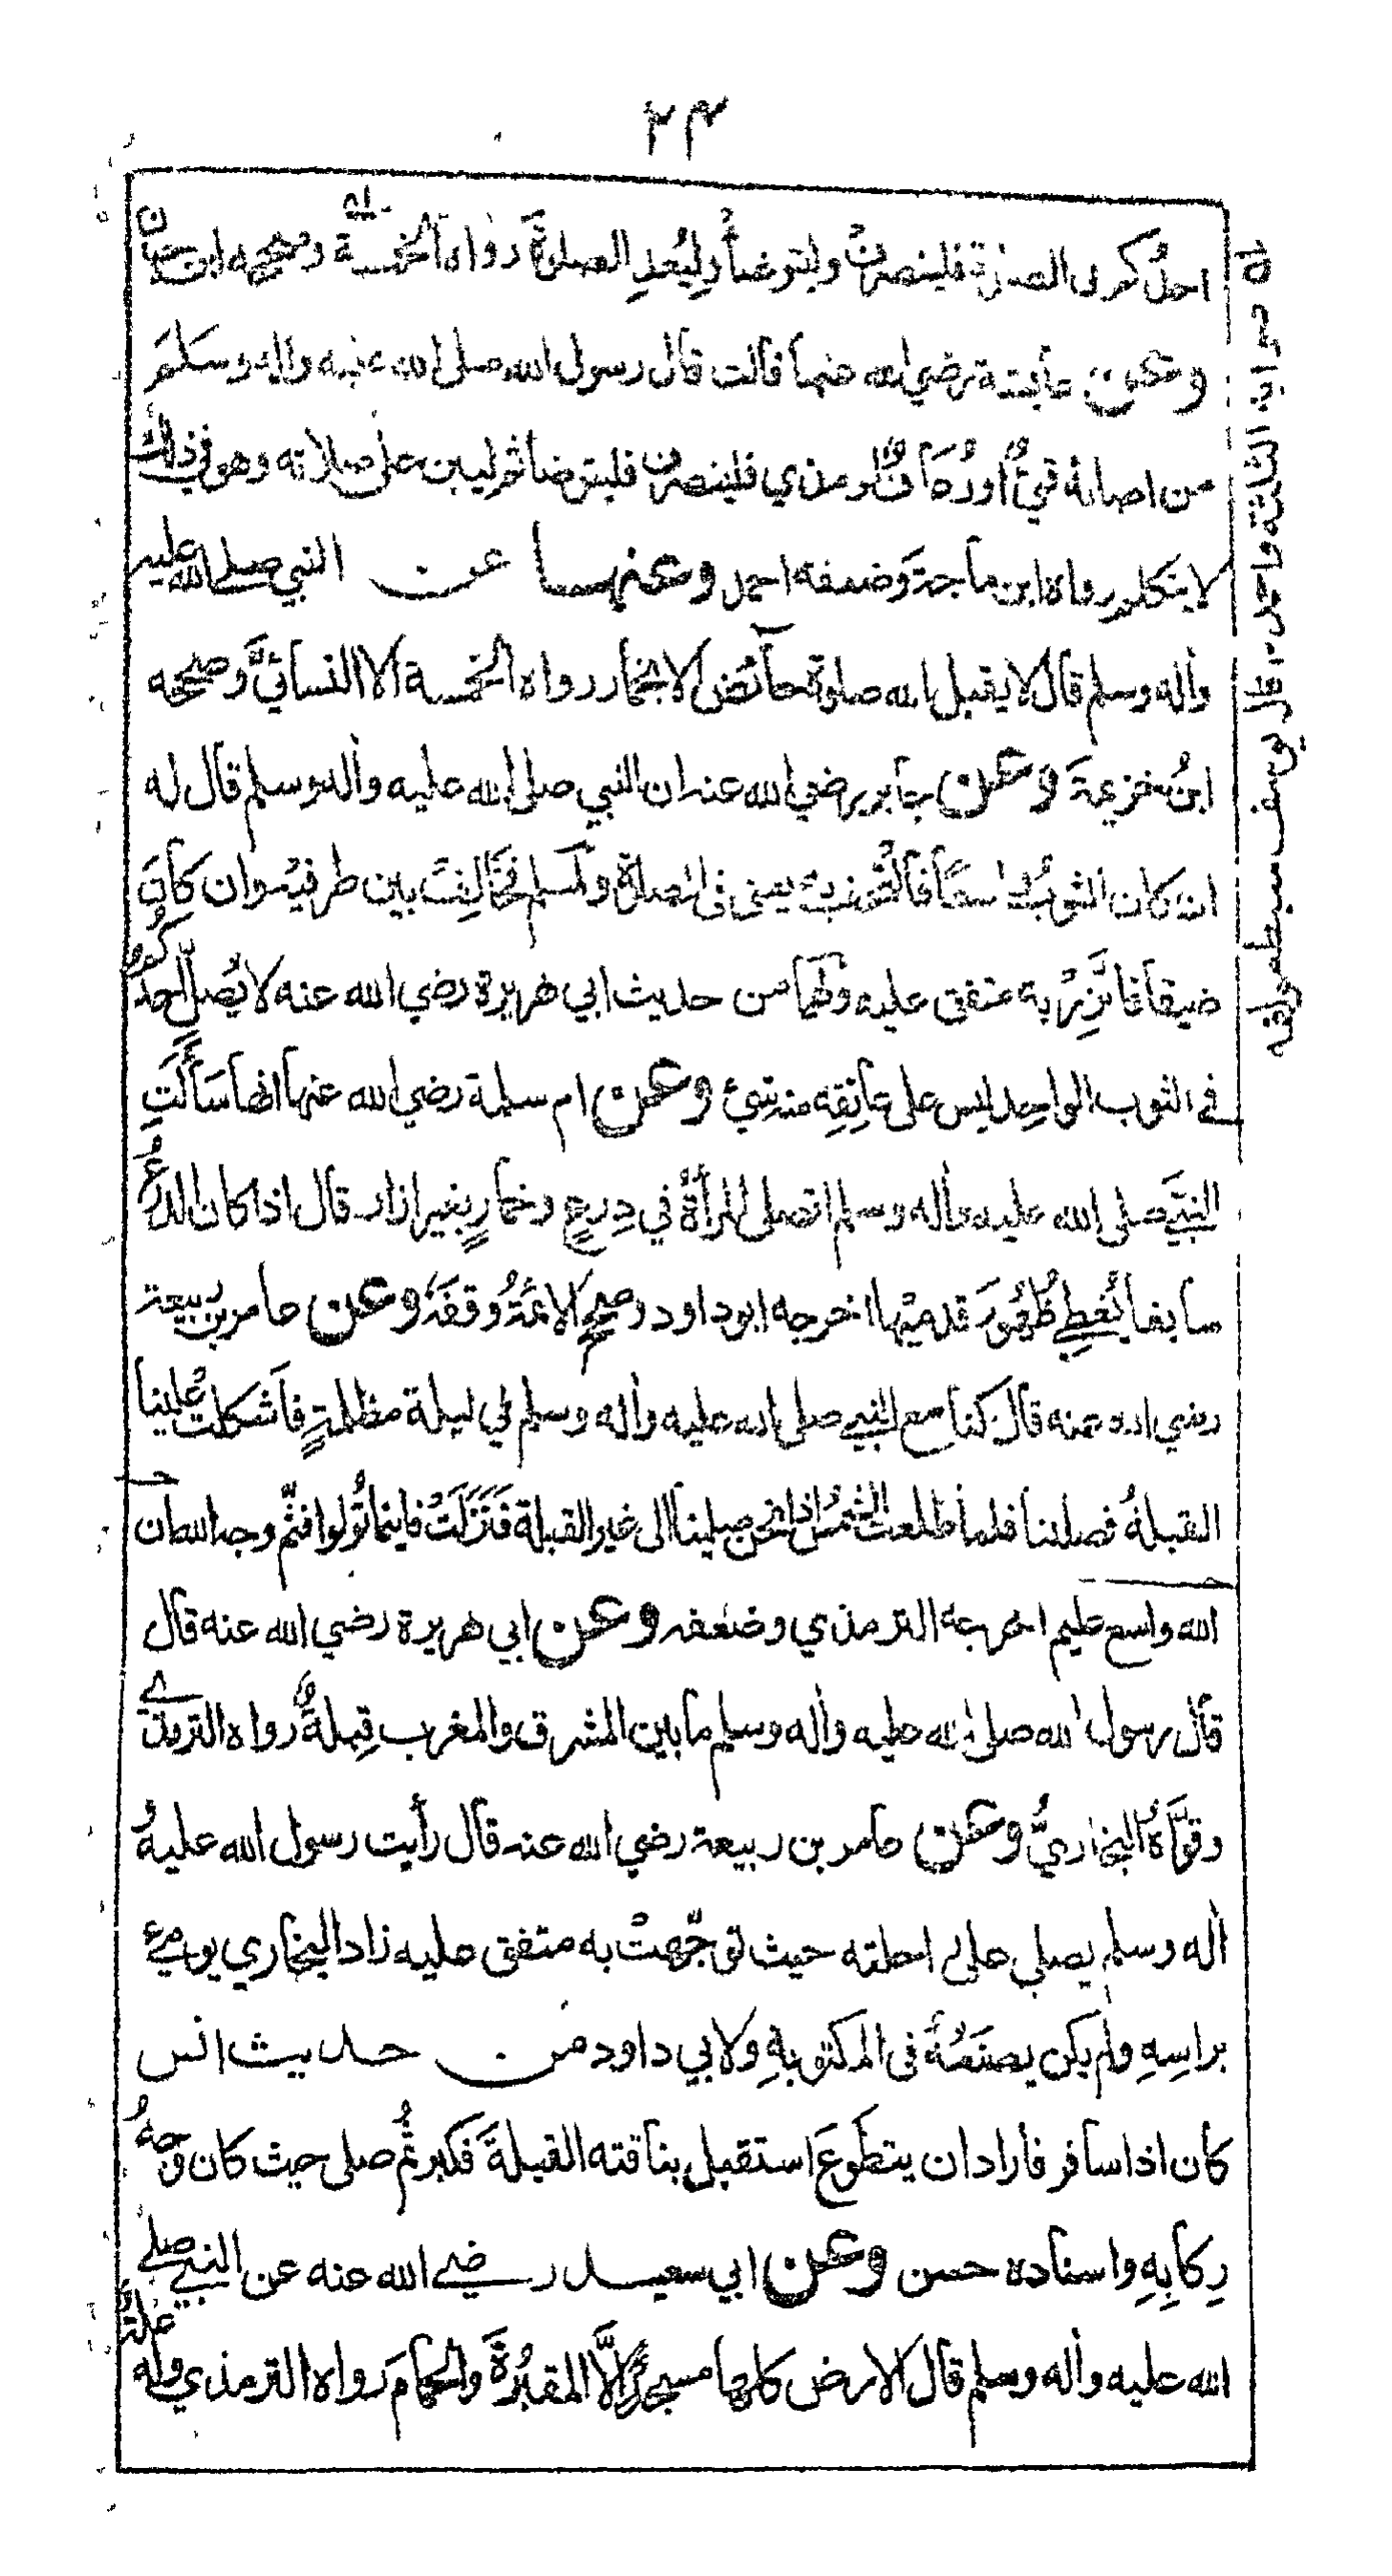 ٢٣
احدكم في الصلوة فلينصرفْ وليتوضأْ وليُعدِ الصلوةَ رواه الخمسة وصححه ابن حبان
وعن عايشة رضي الله عنها قالت قال رسول الله صلى الله عليه واله وسلم
من اصابه قيءٌ او رُعافٌ او مذي فلينصرف فليتوضا ثم ليبن على صلاته وهو في ذلك
لا يتكلم رواه ابن ماجة وضعفه احمد وعنها عن النبي صلى الله عليه
واله وسلم قال لا يقبل الله صلوة حائض الا بخمار رواه الخمسة الا النسائيَّ وصححه
ابنُ خزيمة وعن جابر رضي الله عنه ان النبي صلى الله عليه واله وسلم قال له
ان كان الثوبُ واسعًا فالتحف به يعني في الصلوة ولمسلم فخالِفْ بين طرفيه وان كان
ضيقا فاتَّزِرْ به متفق عليه ولهما من حديث ابي هريرة رضي الله عنه لا يُصلِّ احدكم
في الثوب الواحد ليس على عاتِقِه منه شيئ وعن ام سلمة رضي الله عنها انها سَأَلَتِ
النبيَّ صلى الله عليه واله وسلم اتصلي المرأةُ في دِرعٍ وخمارٍ بغير ازار قال اذا كان الدرعُ
سابغا يُغطي ظُهُورَ قدميْها اخرجه ابو داود وصحح الائمةُ وقفَهُ وعن عامر بن ربيعة
رضي الله عنه قال كنا مع النبي صلى الله عليه واله وسلم في ليلة مظلمةٍ فاَشكلتْ علينا
القبلةُ فصلينا فلما طلعت الشمسُ اذا نحن صلينا الى غير القبلة فَنَزَلَتْ فاينما تُولوا فثمّ وجه الله ان
الله واسع عليم اخرجه الترمذي وضعفه وعن ابي هريرة رضي الله عنه قال
قال رسول الله صلى الله عليه واله وسلم ما بين المشرق والمغرب قِبلةٌ رواه الترمذي
وقوَّاهُ البخاريُّ وعن عامر بن ربيعة رضي الله عنه قال رأيت رسول الله عليه و
اله وسلم يصلي على راحلته حيث توجّهتْ به متفق عليه زاد البخاري يومئ
براسِهِ ولم يكن يصنَعُهُ في المكتوبةِ ولابي داود من حديث انس
كان اذا سافر فاراد ان يتطوعَ استقبل بناقته القبلةَ فكبر ثُم صلى حيث كان وجهُ
رِكابِهِ واسناده حسن وعن ابي سعيد رضي الله عنه عن النبي صلى
الله عليه واله وسلم قال الارض كلها مسجدٌ اِلَّا المقبُرةَ والحمامَ رواه الترمذي وله علةٌ